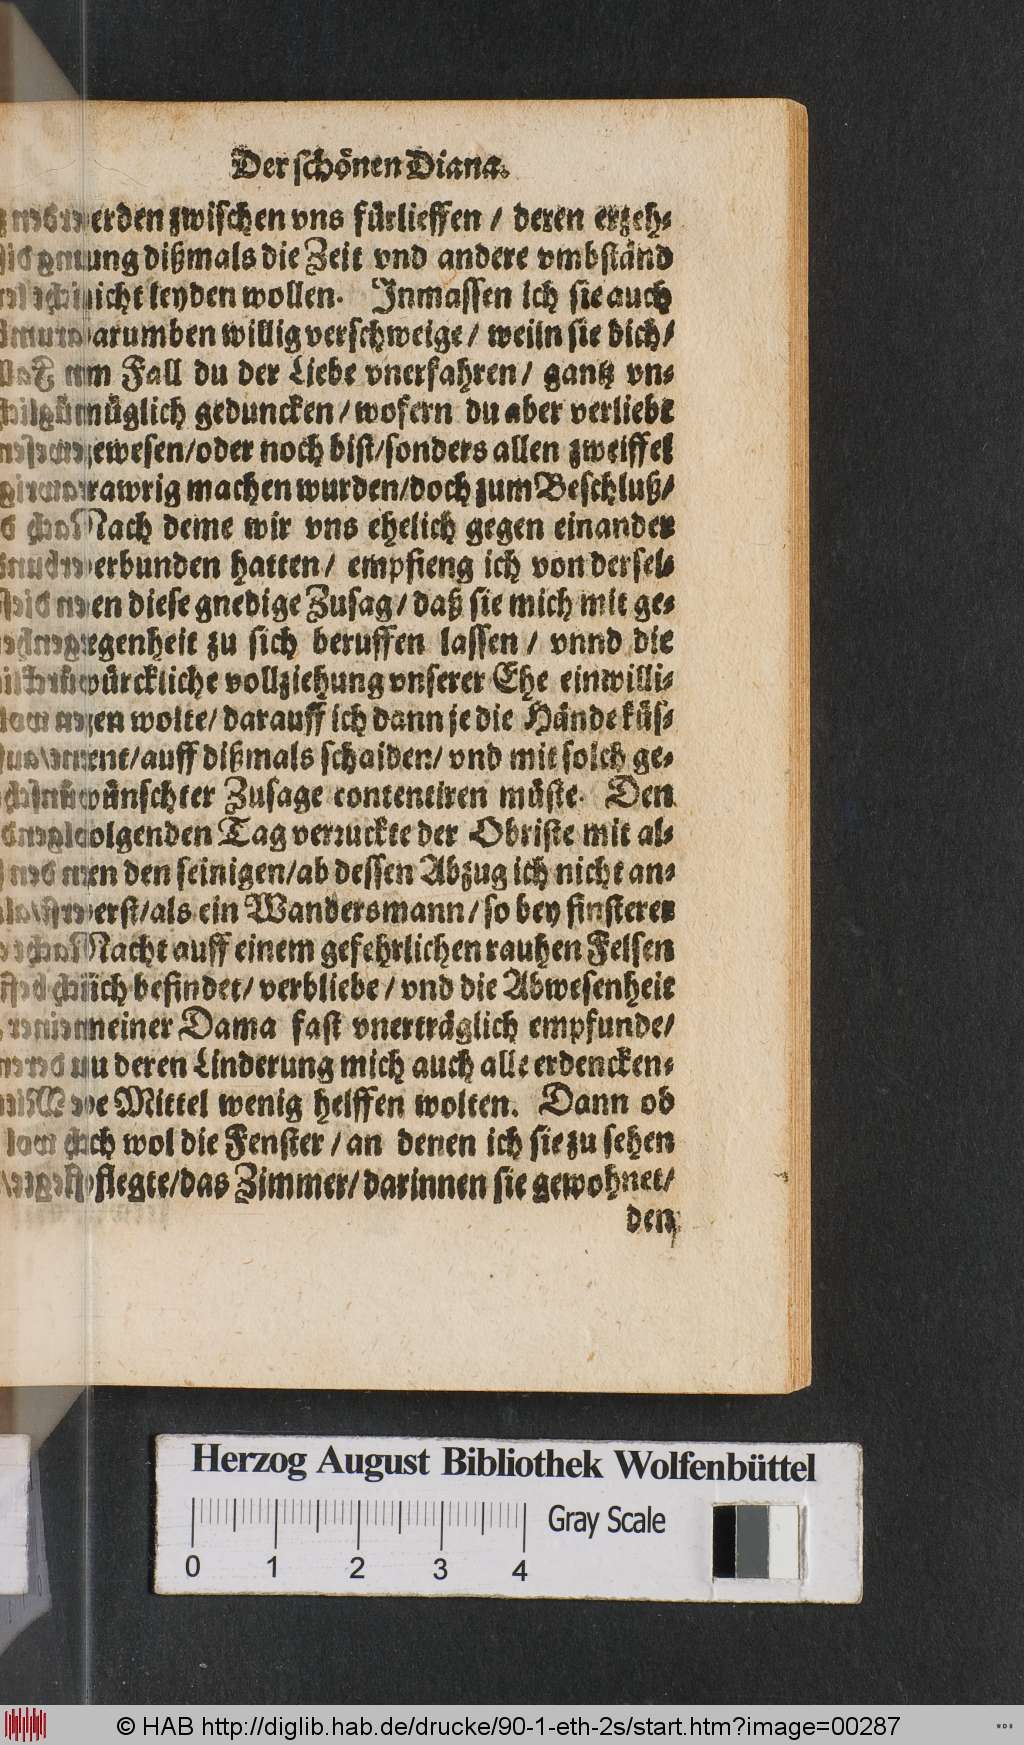 Der schönen Diana.
erden zwischen vns fürlieffen / deren erzeh-
ung dißmals die Zeit vnd andere vmbständ
nicht leyden wollen. Inmassen ich sie auch
darumben willig verschweige / weiln sie dich /
im Fall du der Liebe vnerfahren / gantz vn-
müglich geduncken / wofern du aber verliebt
gewesen / oder noch bist / sonders allen zweiffel
trawrig machen wurden / doch zum Beschluß /
Nach deme wir vns ehelich gegen einander
verbunden hatten / empfieng ich von dersel-
en diese gnedige Zusag / daß sie mich mit ge-
egenheit zu sich beruffen lassen / vnnd die
würckliche vollziehung vnserer Ehe einwilli-
gen wolte / darauff ich dann je die Hände küs-
ent / auff dißmals schaiden / vnd mit solch ge-
wünschter Zusage contentiren müste. Den
folgenden Tag verruckte der Obriste mit al-
en den seinigen / ab dessen Abzug ich nicht an-
derst / als ein Wandersmann / so bey finsterer
Nacht auff einem gefehrlichen rauhen Felsen
sich befindet / verbliebe / vnd die Abwesenheit
meiner Dama fast vnerträglich empfunde /
zu deren Linderung mich auch alle erdencken-
de Mittel wenig helffen wolten. Dann ob
ich wol die Fenster / an denen ich sie zu sehen
pflegte / das Zimmer / darinnen sie gewohnet /
den
Herzog August Bibliothek Wolfenbüttel
Gray Scale
0 1 2 3 4
© HAB http://diglib.hab.de/drucke/90-1-eth-2s/start.htm?image=00287